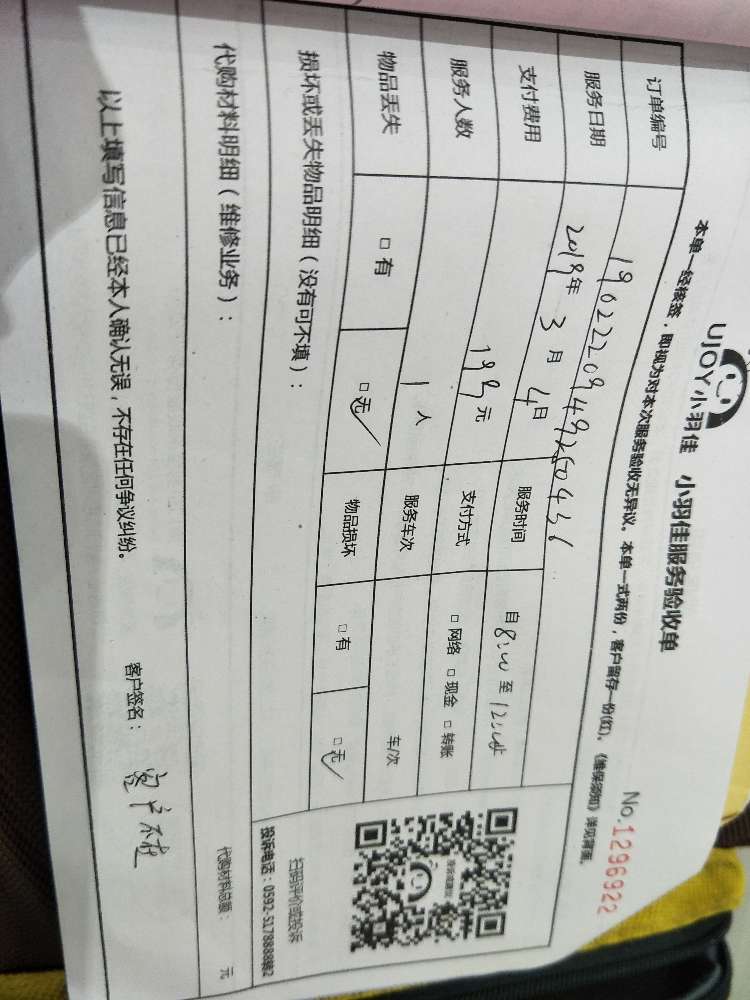 UJOY小羽佳 小羽佳服务验收单
No.1296922
本单一经核签，即视为对本次服务验收无异议。本单一式两份，客户留存一份(红)。《维保须知》详见背面。
订单编号
服务日期 2019年 3月 4日 服务时间 自8:00至12:00止
支付费用 199元 支付方式 □网络 □现金 □转账
服务人数 1人 服务车次 车/次
物品丢失 □有 □无✓ 物品损坏 □有 □无✓
损坏或丢失物品明细（没有可不填）：
扫码评价或投诉
投诉电话：0592-5178888转2
代购材料明细（维修业务）： 代购材料总额： 元
以上填写信息已经本人确认无误，不存在任何争议纠纷。 客户签名： 客户不在